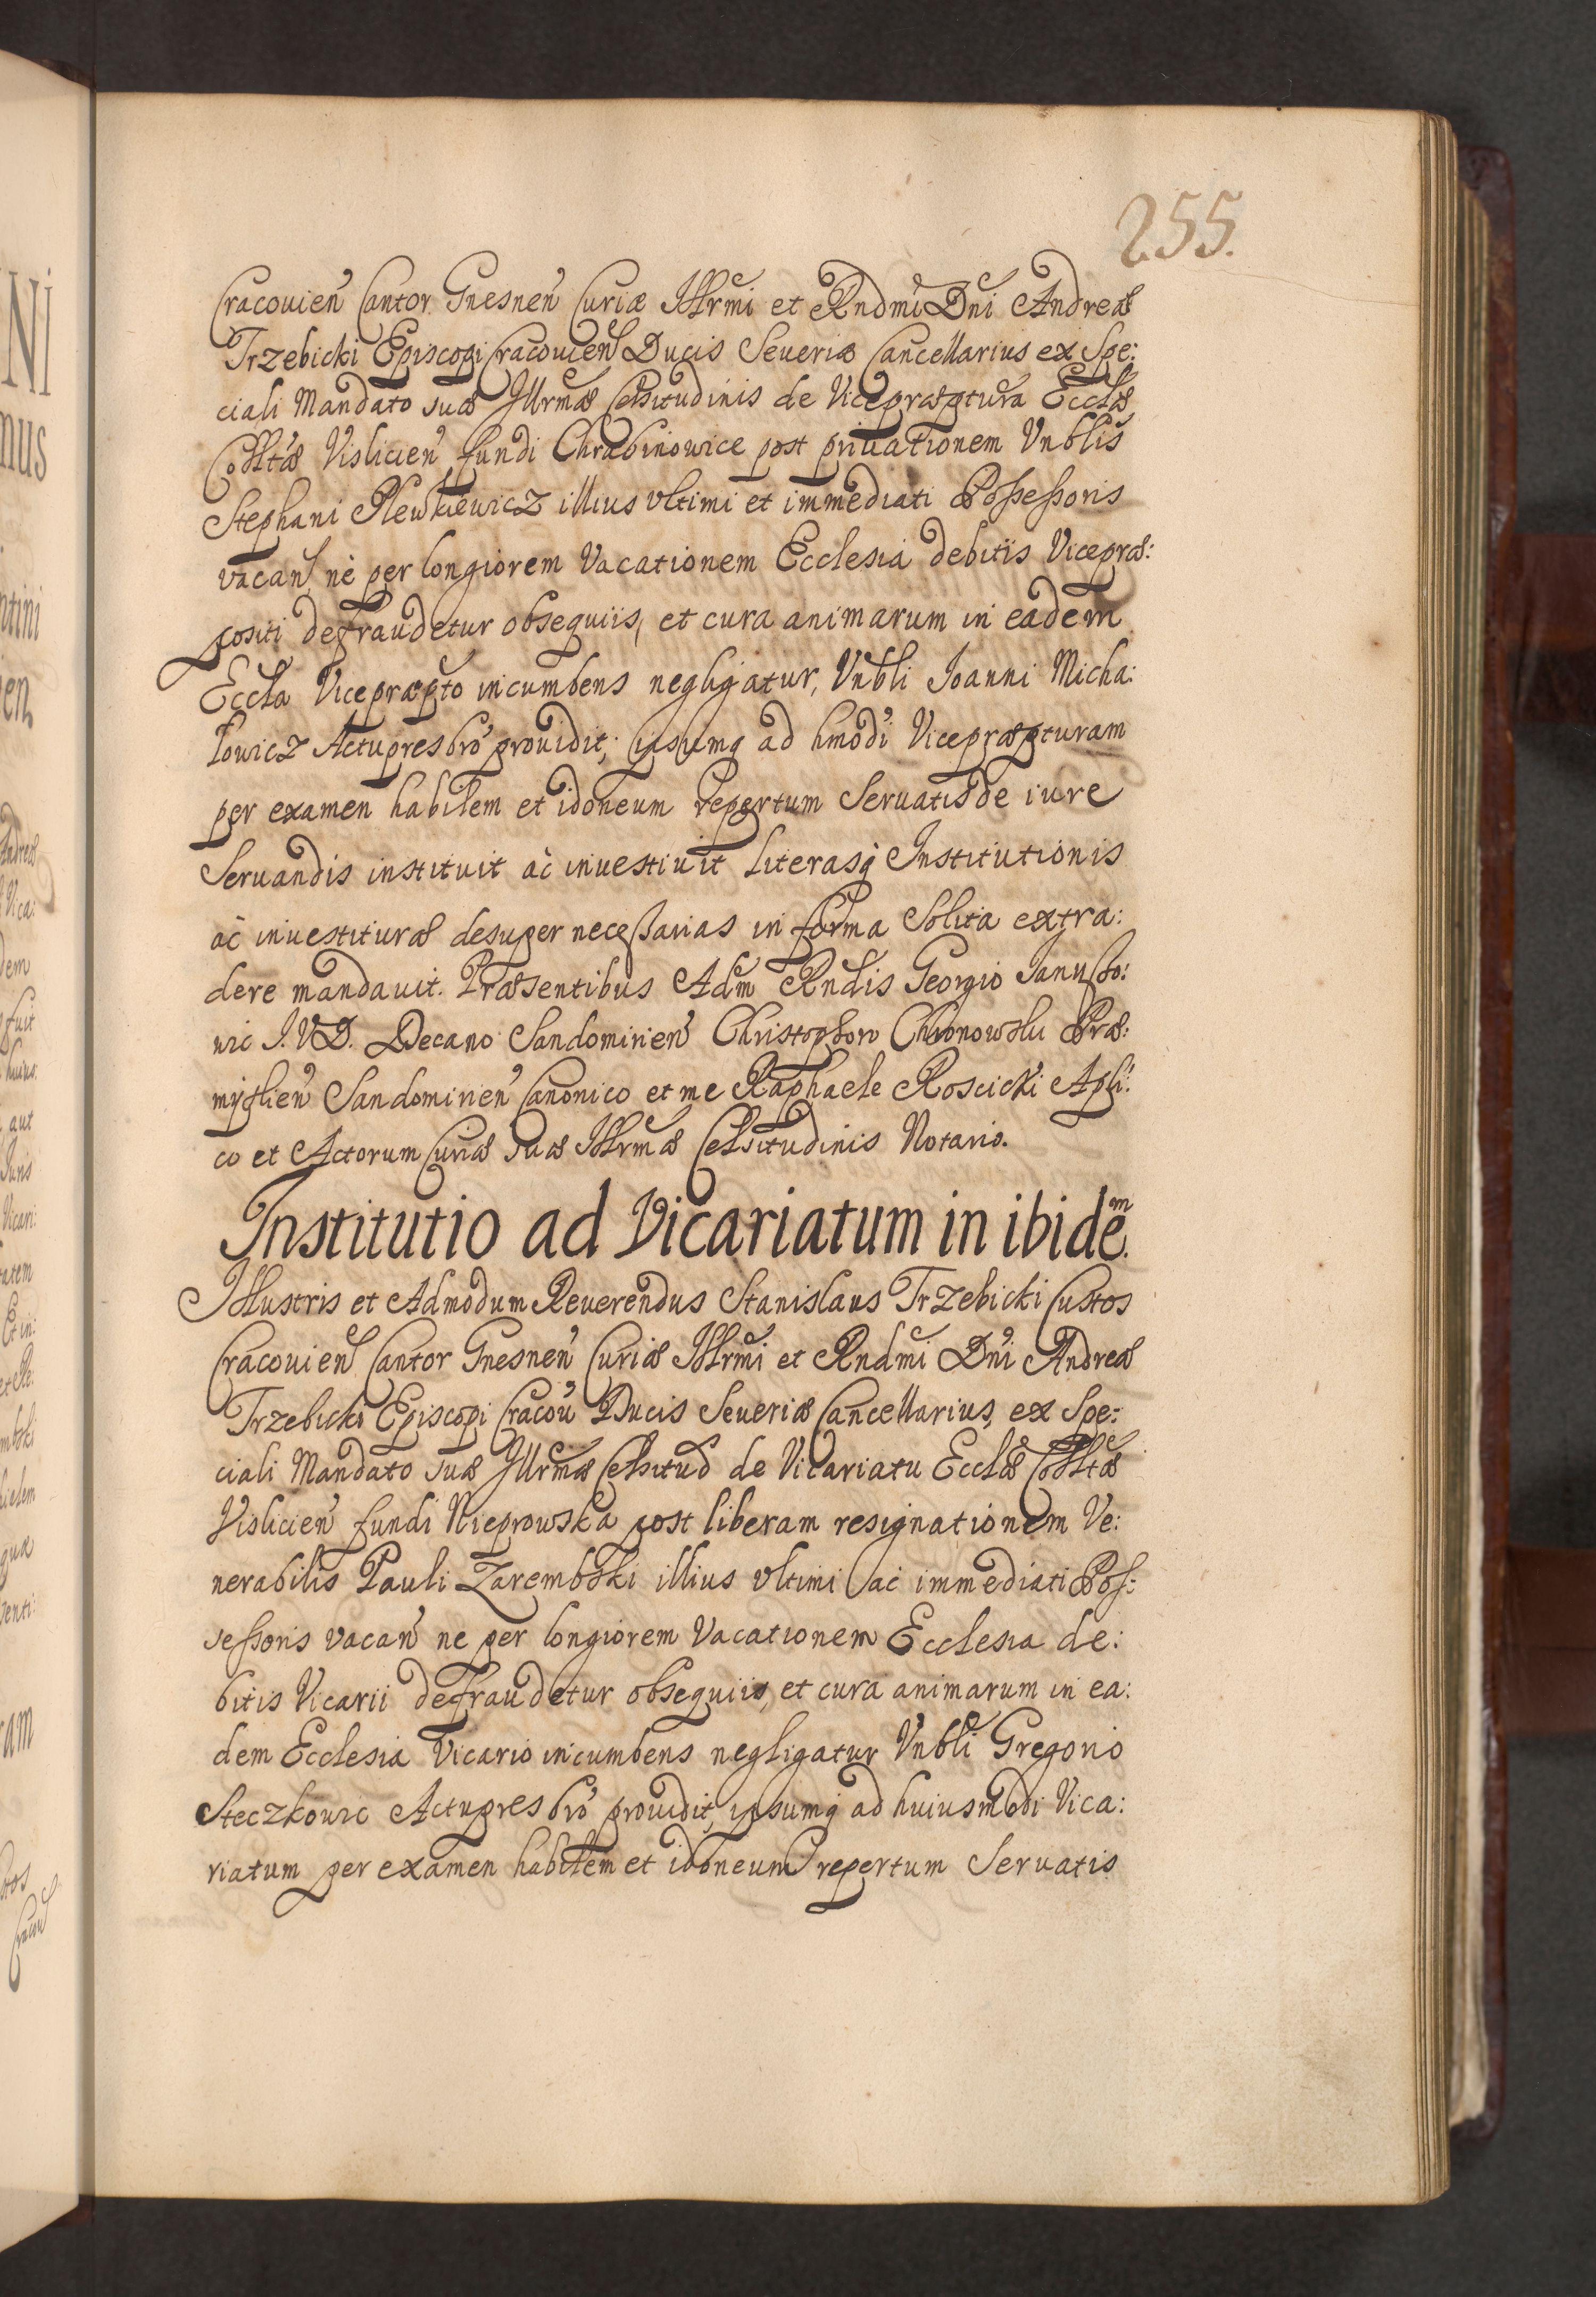 255.
Cracovien Cantor Gnesnen Curiæ Illrmi et Rndmi Dni Andreæ
Trzebicki Episcopi Cracovien Ducis Severiæ Cancellarius ex Spe:
ciali Mandato suæ Illrmæ Celsitudinis de Vicepræptura Ecclæ
Colltæ Vislicien fundi Chrabinowice post privationem Vnblis
Stephani Plewkiewicz illius vltimi et immediati Possessoris
vacan, ne per longiorem Vacationem Ecclesia debitis Vicepræ:
positi defraudetur obsequiis, et cura animarum in eadem
Eccla Vicepræpto incumbens negligatur, Vnbli Ioanni Micha:
lowicz Actupresbro providit, ipsumq ad hmodi Vicepræpturam
per examen habilem et idoneum repertum Servatis de iure
Servandis instituit ac investivit Literasq Institutionis
ac investituræ desuper necessarias in forma Solita extra:
dere mandavit. Præsentibus Adm Rndis Georgio Ianusso:
wic I.V.D. Decano Sandomirien Christophoro Chronowski Præ:
myslien Sandomirien Canonico et me Raphaele Roscicki Apli:
co et Actorum Curiæ suæ Illrmæ Celsitudinis Notario.
Institutio ad Vicariatum in ibidem.
Illustris et Admodum Reverendus Stanislaus Trzebicki Custos
Cracovien Cantor Gnesnen Curiæ Illrmi et Rndmi Dni Andreæ
Trzebicki Episcopi Cracov Ducis Severiæ Cancellarius, ex Spe:
ciali Mandato suæ Illrmæ Celsitud de Vicariatu Ecclæ Colltæ
Vislicien fundi Nieprowska post liberam resignationem Ve:
nerabilis Pauli Zarembski illius vltimi ac immediati Pos:
sessoris vacan ne per longiorem Vacationem Ecclesia de:
bitis Vicarii defraudetur obsequiis, et cura animarum in ea:
dem Ecclesia Vicario incumbens negligatur Vnbli Gregorio
Steczkowic Actupresbro providit, ipsumq ad huiusmodi Vica:
riatum per examen habilem et idoneum repertum Servatis